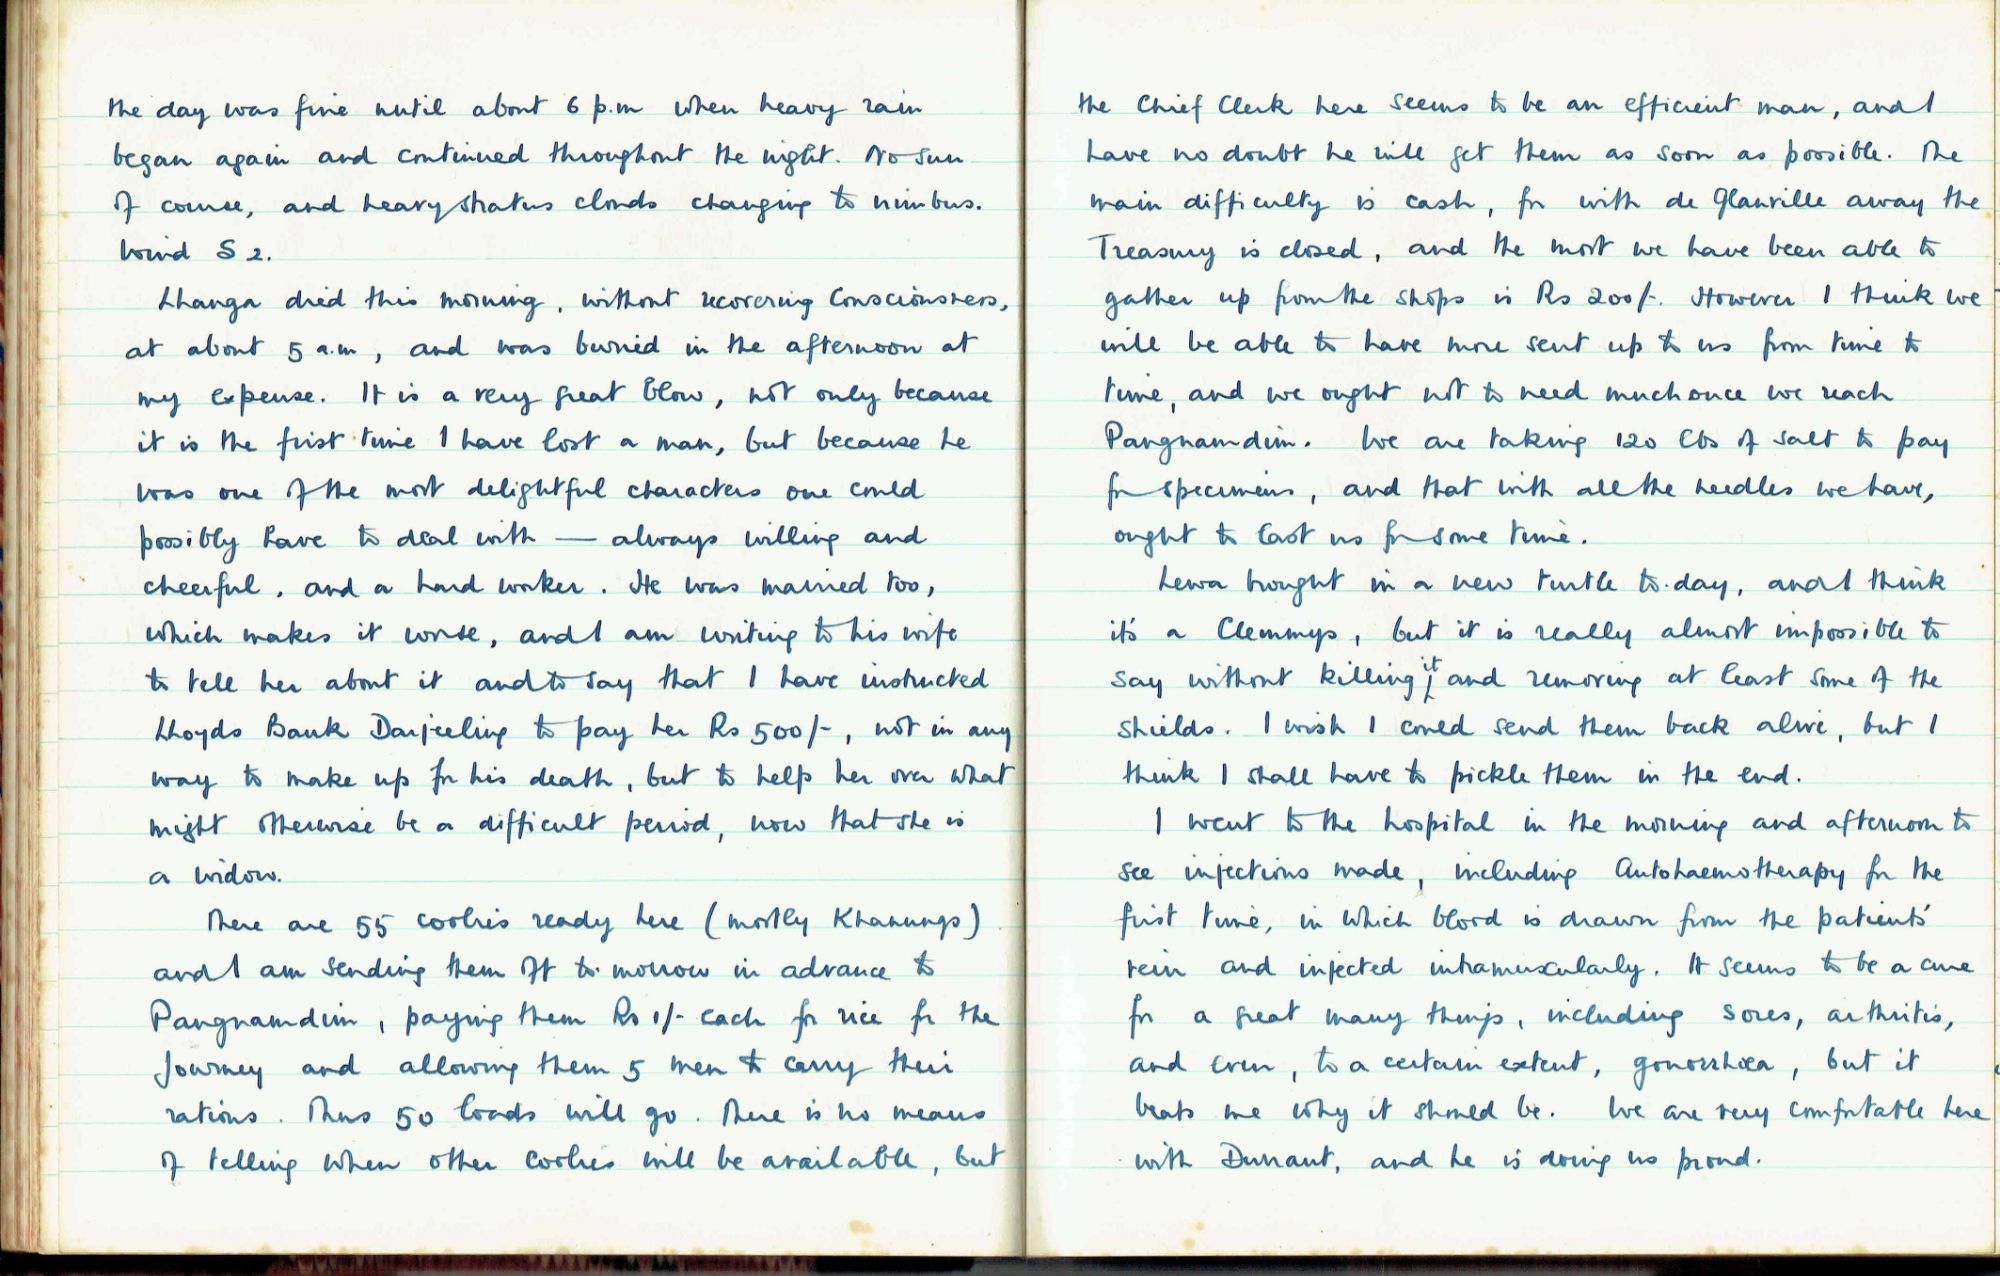 the day was fine until about 6 p.m when heavy rain
began again and continued throughout the night. No sun
of course, and heavy stratus clouds changing to nimbus.
Wind S 2.
Lhanga died this morning, without recovering consciousness,
at about 5 a.m, and was buried in the afternoon at
my expense. It is a very great blow, not only because
it is the first time I have lost a man, but because he
was one of the most delightful characters one could
possibly have to deal with — always willing and
cheerful, and a hard worker. He was married too,
which makes it worse, and I am writing to his wife
to tell her about it and to say that I have instructed
Lloyds Bank Darjeeling to pay her Rs 500/-, not in any
way to make up for his death, but to help her over what
might otherwise be a difficult period, now that she is
a widow.
There are 55 coolies ready here (mostly Khanungs)
and I am sending them off to-morrow in advance to
Pangnamdim, paying them Rs 1/- each for rice for the
journey and allowing them 5 men to carry their
rations. Thus 50 loads will go. There is no means
of telling when other coolies will be available, but
the Chief Clerk here seems to be an efficient man, and I
have no doubt he will get them as soon as possible. The
main difficulty is cash, for with de Glanville away the
Treasury is closed, and the most we have been able to
gather up from the shops is Rs 200/-. However I think we
will be able to have more sent up to us from time to
time, and we ought not to need much once we reach
Pangnamdim. We are taking 120 lbs of salt to pay
for specimens, and that with all the needles we have,
ought to last us for some time.
Lewa brought in a new turtle to-day, and I think
it's a Clemmys, but it is really almost impossible to
say without killing it and removing at least some of the
shields. I wish I could send them back alive, but I
think I shall have to pickle them in the end.
I went to the hospital in the morning and afternoon to
see injections made, including Autohaemotherapy for the
first time, in which blood is drawn from the patients'
vein and injected intramuscularly. It seems to be a cure
for a great many things, including sores, arthritis,
and even, to a certain extent, gonorrhœa, but it
beats me why it should be. We are very comfortable here
with Durrant, and he is doing us proud.